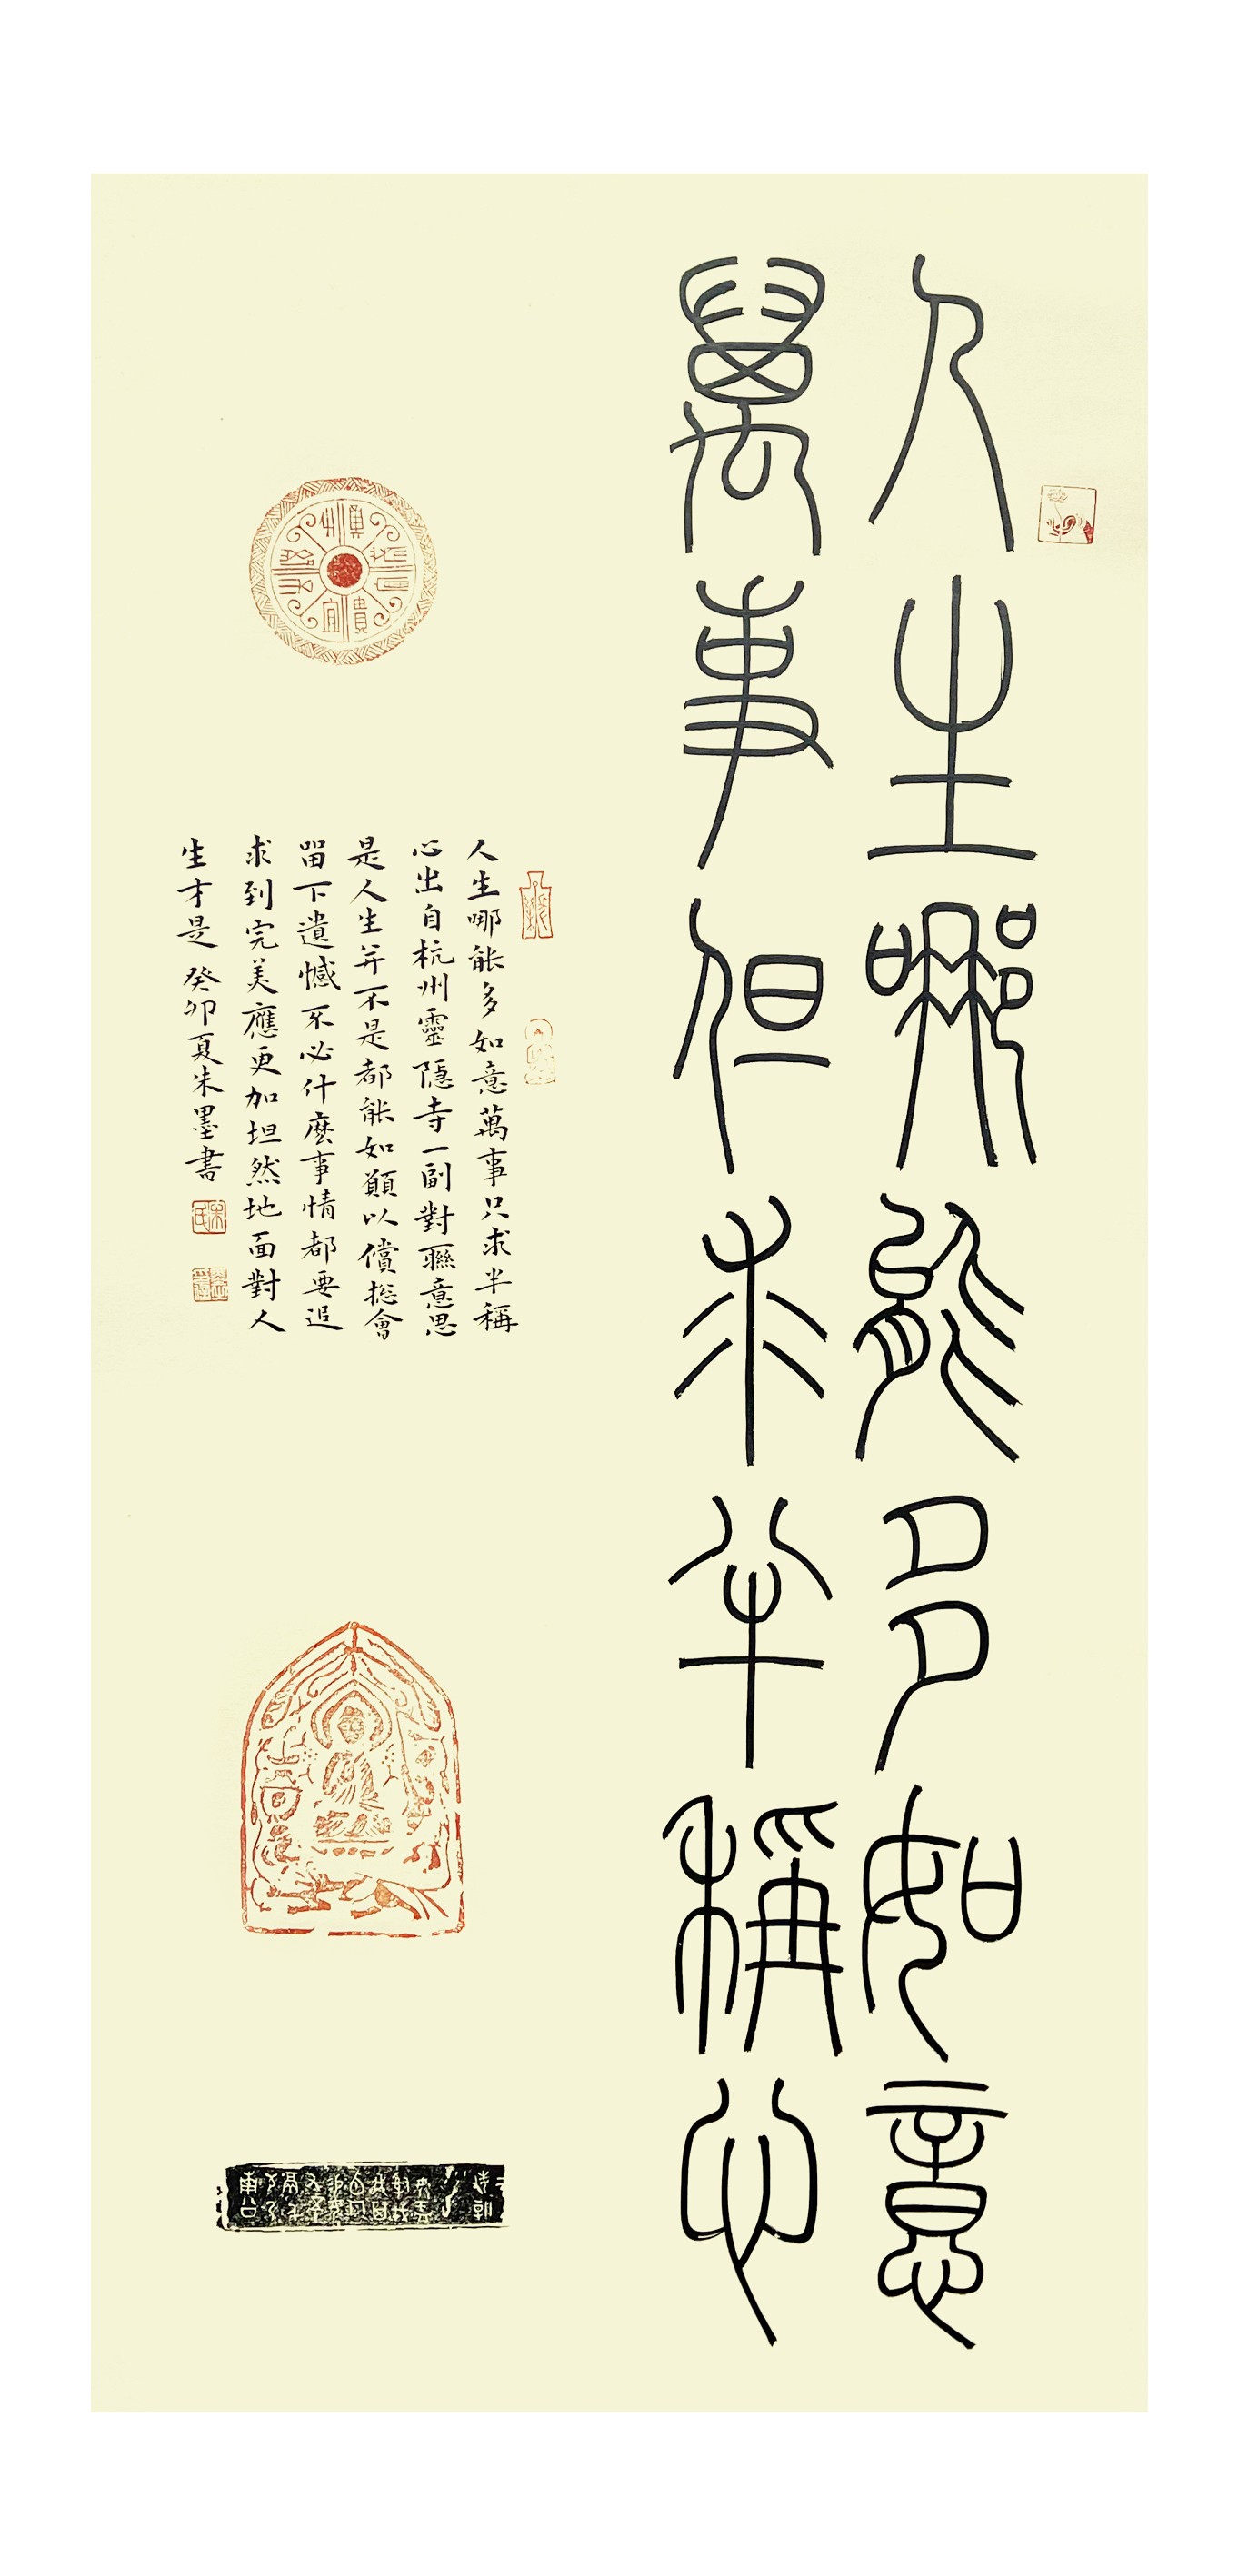 人生哪能多如意
萬事但求半稱心
人生哪能多如意萬事只求半稱
心出自杭州靈隱寺一副對聯意思
是人生并不是都能如願以償總會
留下遺憾不必什麼事情都要追
求到完美應更加坦然地面對人
生才是 癸卯夏朱墨書